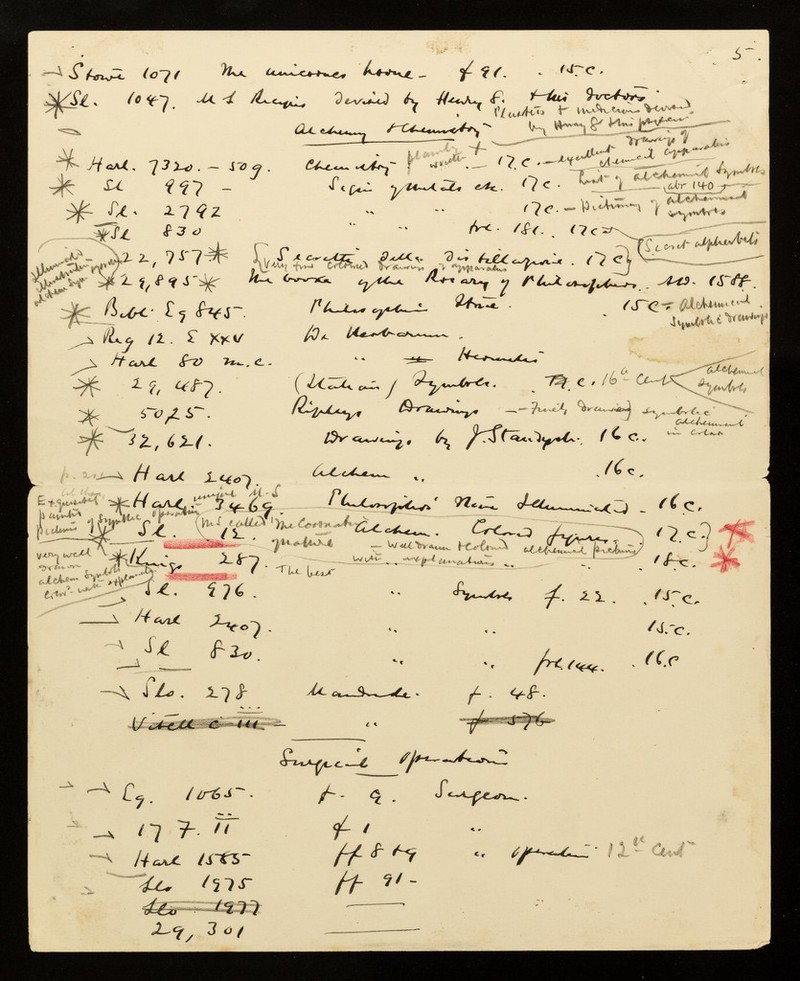 5.
Stowe 1071 The unicornes horne - f 91. . 15.c.
Sl. 1047. MS Recipes devised by Henry 8. & his doctors
Plasters & medicines devised
by Henry 8 & his physician
Alchemy & Chemistry
Harl. 7320. - 509. Chemistry plainly written & - 17.c. - excellent drawings of
chemical apparatus
Sl 997 - Signs of metals etc. 17c. List of alchemical symbols
abt 140
Sl. 2792 " " 17c. - Dictionary of alchemical
symbols
Sl 830 " " fol. 181. 17c
Secret alphabets
22,757 Secretti della Distillazione. 17c
Very fine coloured drawings of apparatus
29,895 The booke of the Rosary of Philosophers. AD. 1588.
Bibl. Eg 845. Philosophers Stone. 15c = Alchemical
Symbolic drawings
Reg 12. E XXV De Herbarum.
Harl 80 m.c. " Hermetis
29,487. Symbols. 16th Cent alchemical
symbols
5025. Ripleys Drawings - Finely drawn symbolic
alchemical
in color
32,621. Drawings by J. Standysh. 16c.
Harl 2407. Alchem " .16c.
Exquisitely
painted
pictures of symbolic operations
Harl. 3469. unique M.S Philosophers Stone Illuminated - 16c.
Sl. 12. MS called The Coronation Nature Alchem. Colored figures. 17.c.
very well
drawn
alchem symbols
color. with explanation
- Well drawn & colored alchemical pictures
with explanations
Kings 287. The best " " .18c.
Sl. 976. " Symbols f. 22. .15.c.
Harl 2407. " " 15.c.
Sl 830. " " fol. 144. .16.c
Slo. 278 Mandrake. f. 48.
Vitell C III - " f 576
Surgical Operations
Eg. 1065. f. 9. Surgeon.
17 F. II f 1 "
Harl 1585 ff 8 & 9 " operation 12th Cent
Slo 1975 ff 91 -
Slo 1977
29,301